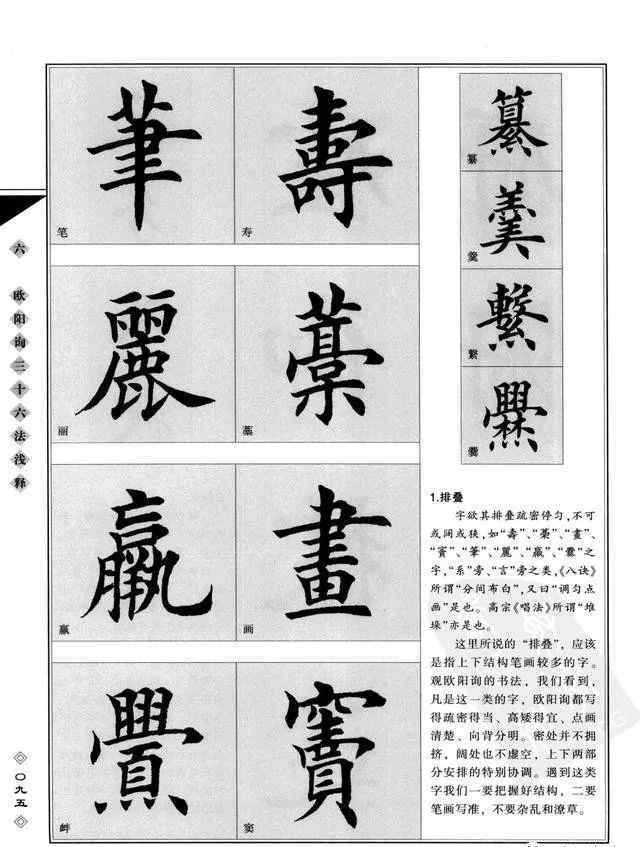 六 欧阳询三十六法浅释
筆
笔
壽
寿
麗
丽
藁
藁
羸
赢
畫
画
釁
衅
竇
窦
纂
纂
羹
羹
繫
繫
爨
爨
1.排叠
字欲其排叠疏密停匀,不可
或阔或狭,如“壽”、“藁”、“畫”、
“竇”、“筆”、“麗”、“羸”、“爨”之
字,“系”旁、“言”旁之类,《八诀》
所谓“分间布白”,又曰“调匀点
画”是也。高宗《唱法》所谓“堆
垛”亦是也。
这里所说的“排叠”,应该
是指上下结构笔画较多的字。
观欧阳询的书法,我们看到,
凡是这一类的字,欧阳询都写
得疏密得当、高矮得宜、点画
清楚、向背分明。密处并不拥
挤,阔处也不虚空,上下两部
分安排的特别协调。遇到这类
字我们一要把握好结构,二要
笔画写准,不要杂乱和潦草。
〇九五